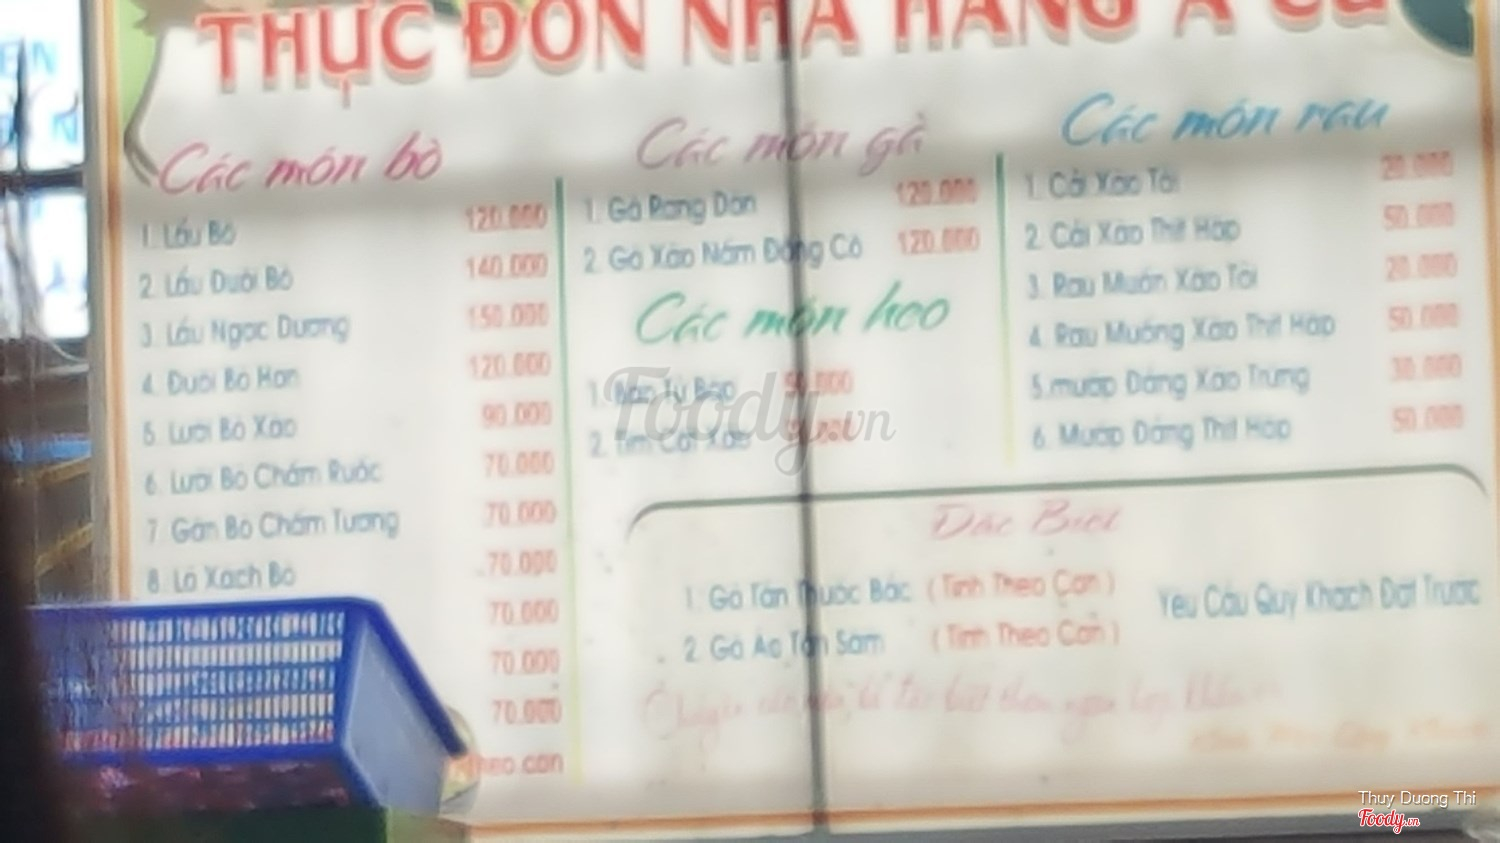 THỰC ĐƠN NHÀ HÀNG Á CÚ
Các món bò
1. Lẩu Bò 120.000
2. Lẩu Đuôi Bò 140.000
3. Lẩu Ngọc Dương 150.000
4. Đuôi Bò Hon 120.000
5. Lưỡi Bò Xào 90.000
6. Lưỡi Bò Chấm Ruốc 70.000
7. Gân Bò Chấm Tương 70.000
8. Lá Xách Bò 70.000
70.000
70.000
70.000
Theo con
Các món gà
1. Gà Rang Dân 120.000
2. Gà Xào Nấm Đông Cô 120.000
Các món heo
1. Bao Tử 50.000
2. Tim Cật Xào
Các món rau
1. Cải Xào Tỏi 20.000
2. Cải Xào Thịt Hộp 50.000
3. Rau Muốn Xào Tỏi 20.000
4. Rau Muống Xào Thịt Hộp 50.000
5.mướp Đắng Xào Trứng 30.000
6. Mướp Đắng Thịt Hộp 50.000
Đặc Biệt
1. Gà Tần Thuốc Bắc (Tính Theo Con)
2. Gà Ác Tần Sâm (Tính Theo Con)
Yêu Cầu Quý Khách Đặt Trước
Foody.vn
Thuy Duong Thi
Foody.vn